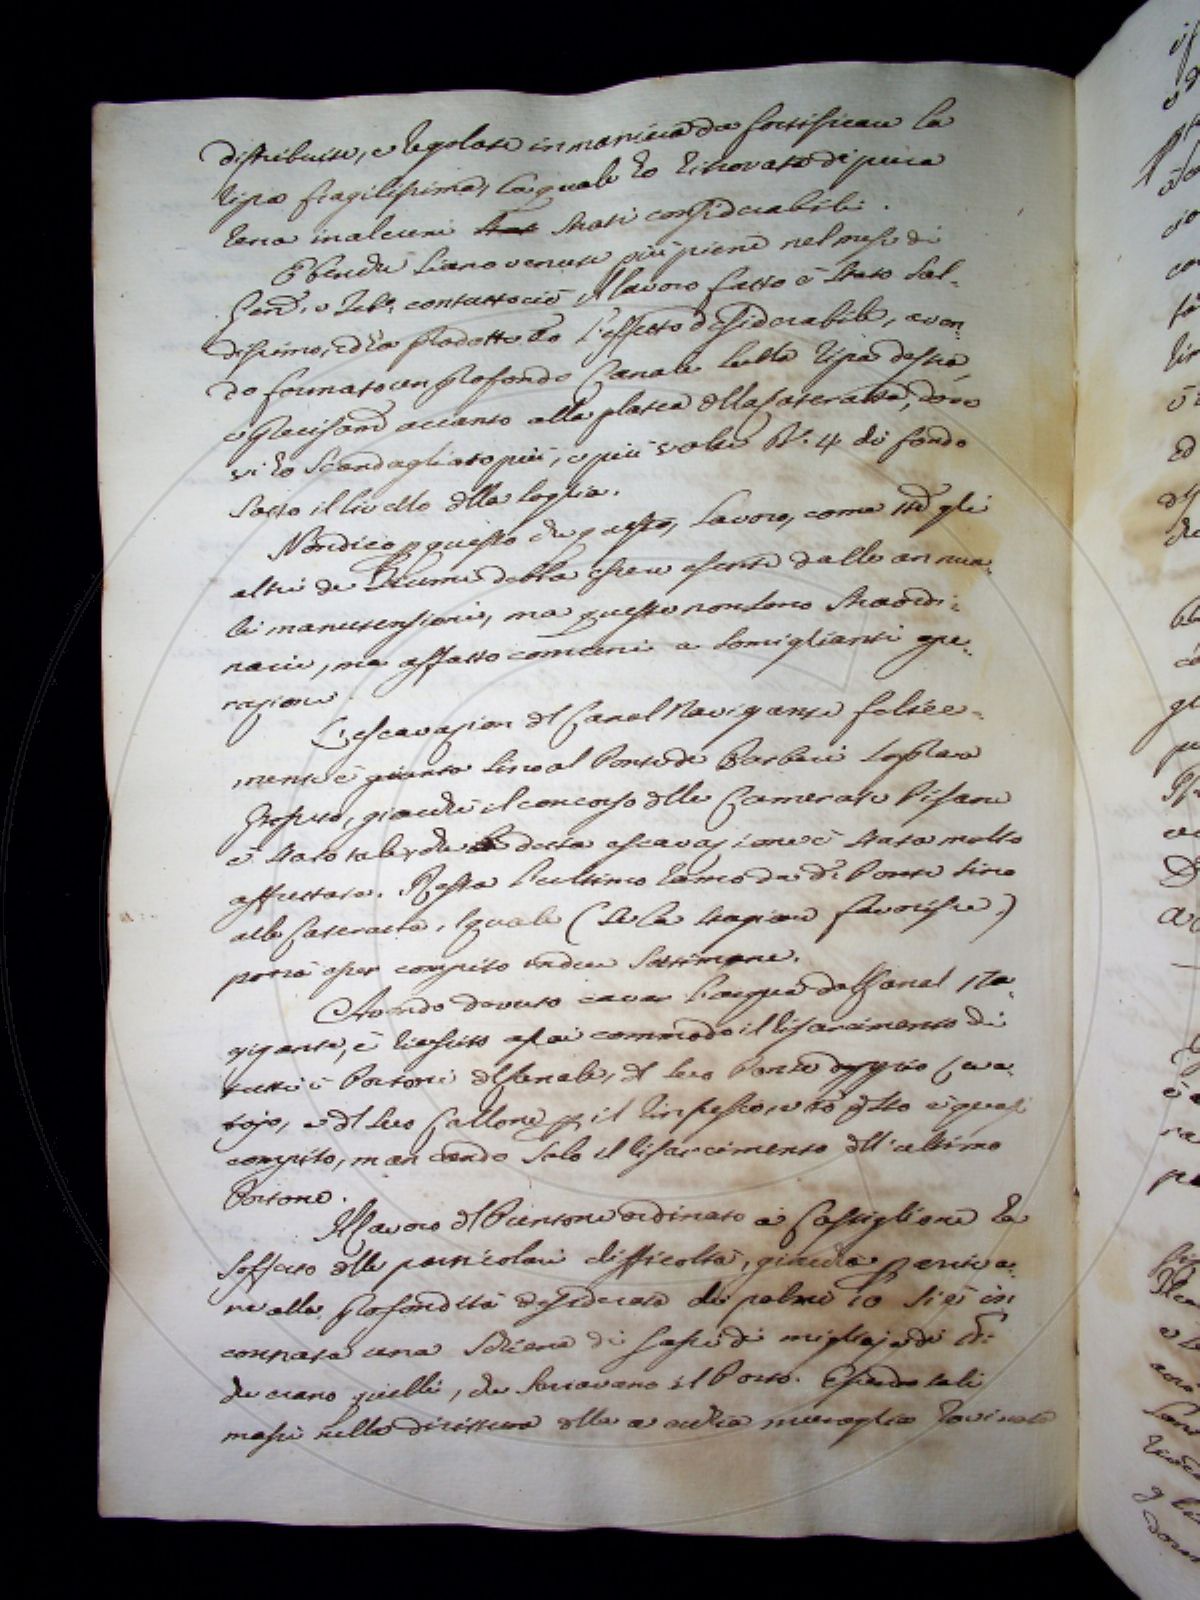 distribuite, e regolate in maniera da fortificare la
ripa fragilissima, la quale ho ritrovata di pura
rena in alcuni strati considerabili.
Benchè siano venute più piene nel mese di
Genn.o e Feb.o contuttociò il lavoro fatto è stato sal-
dissimo, ed ha prodotto l'effetto desiderabile, aven-
do formato un profondo Canale sulla ripa destra,
e precisam.e accanto alla platea della Cateratta, dove
vi ho scandagliato più, e più volte B.a 4 di fondo
sotto il livello della soglia.
Non dico p questo che questo lavoro, come tutti gli
altri de Fiumi debba essere esente dalle annua-
li manutensioni, ma queste non sono straordi-
narie, ma affatto comuni a somiglianti ope-
razioni.
L'escavazion del Canal Navigante felice-
mente è giunta sino al Ponte di Barbaru
giacchè il concorso delle Camerate Pisane
è stato tale, che detta escavazione è stata molto
affrettata. Resta l'ultimo ramo da d.o Ponte sino
alla Cateratta, il quale (se la stagione favorisse)
potrà esser compito in due settimane.
Avendo dovuto cavar l'acqua dal Canal Na-
vigante, è riescito assai commodo il risarcimento di
tutti i Portoni
e del suo Callone p il e tutto è quasi
compito, mancando solo il risarcimento dell'ultimo
Portone.
Il lavoro del Puntone ordinato a Castiglione ha
sofferto delle particolari difficoltà, giacchè p arriva-
re alla profondità desiderata di palmi 10 si è in-
contrata una schiera di sassi di migliaja di
che erano quelli, che serravano il Porto. Essendo tali
massi nella dirittura della antica muraglia rovinata